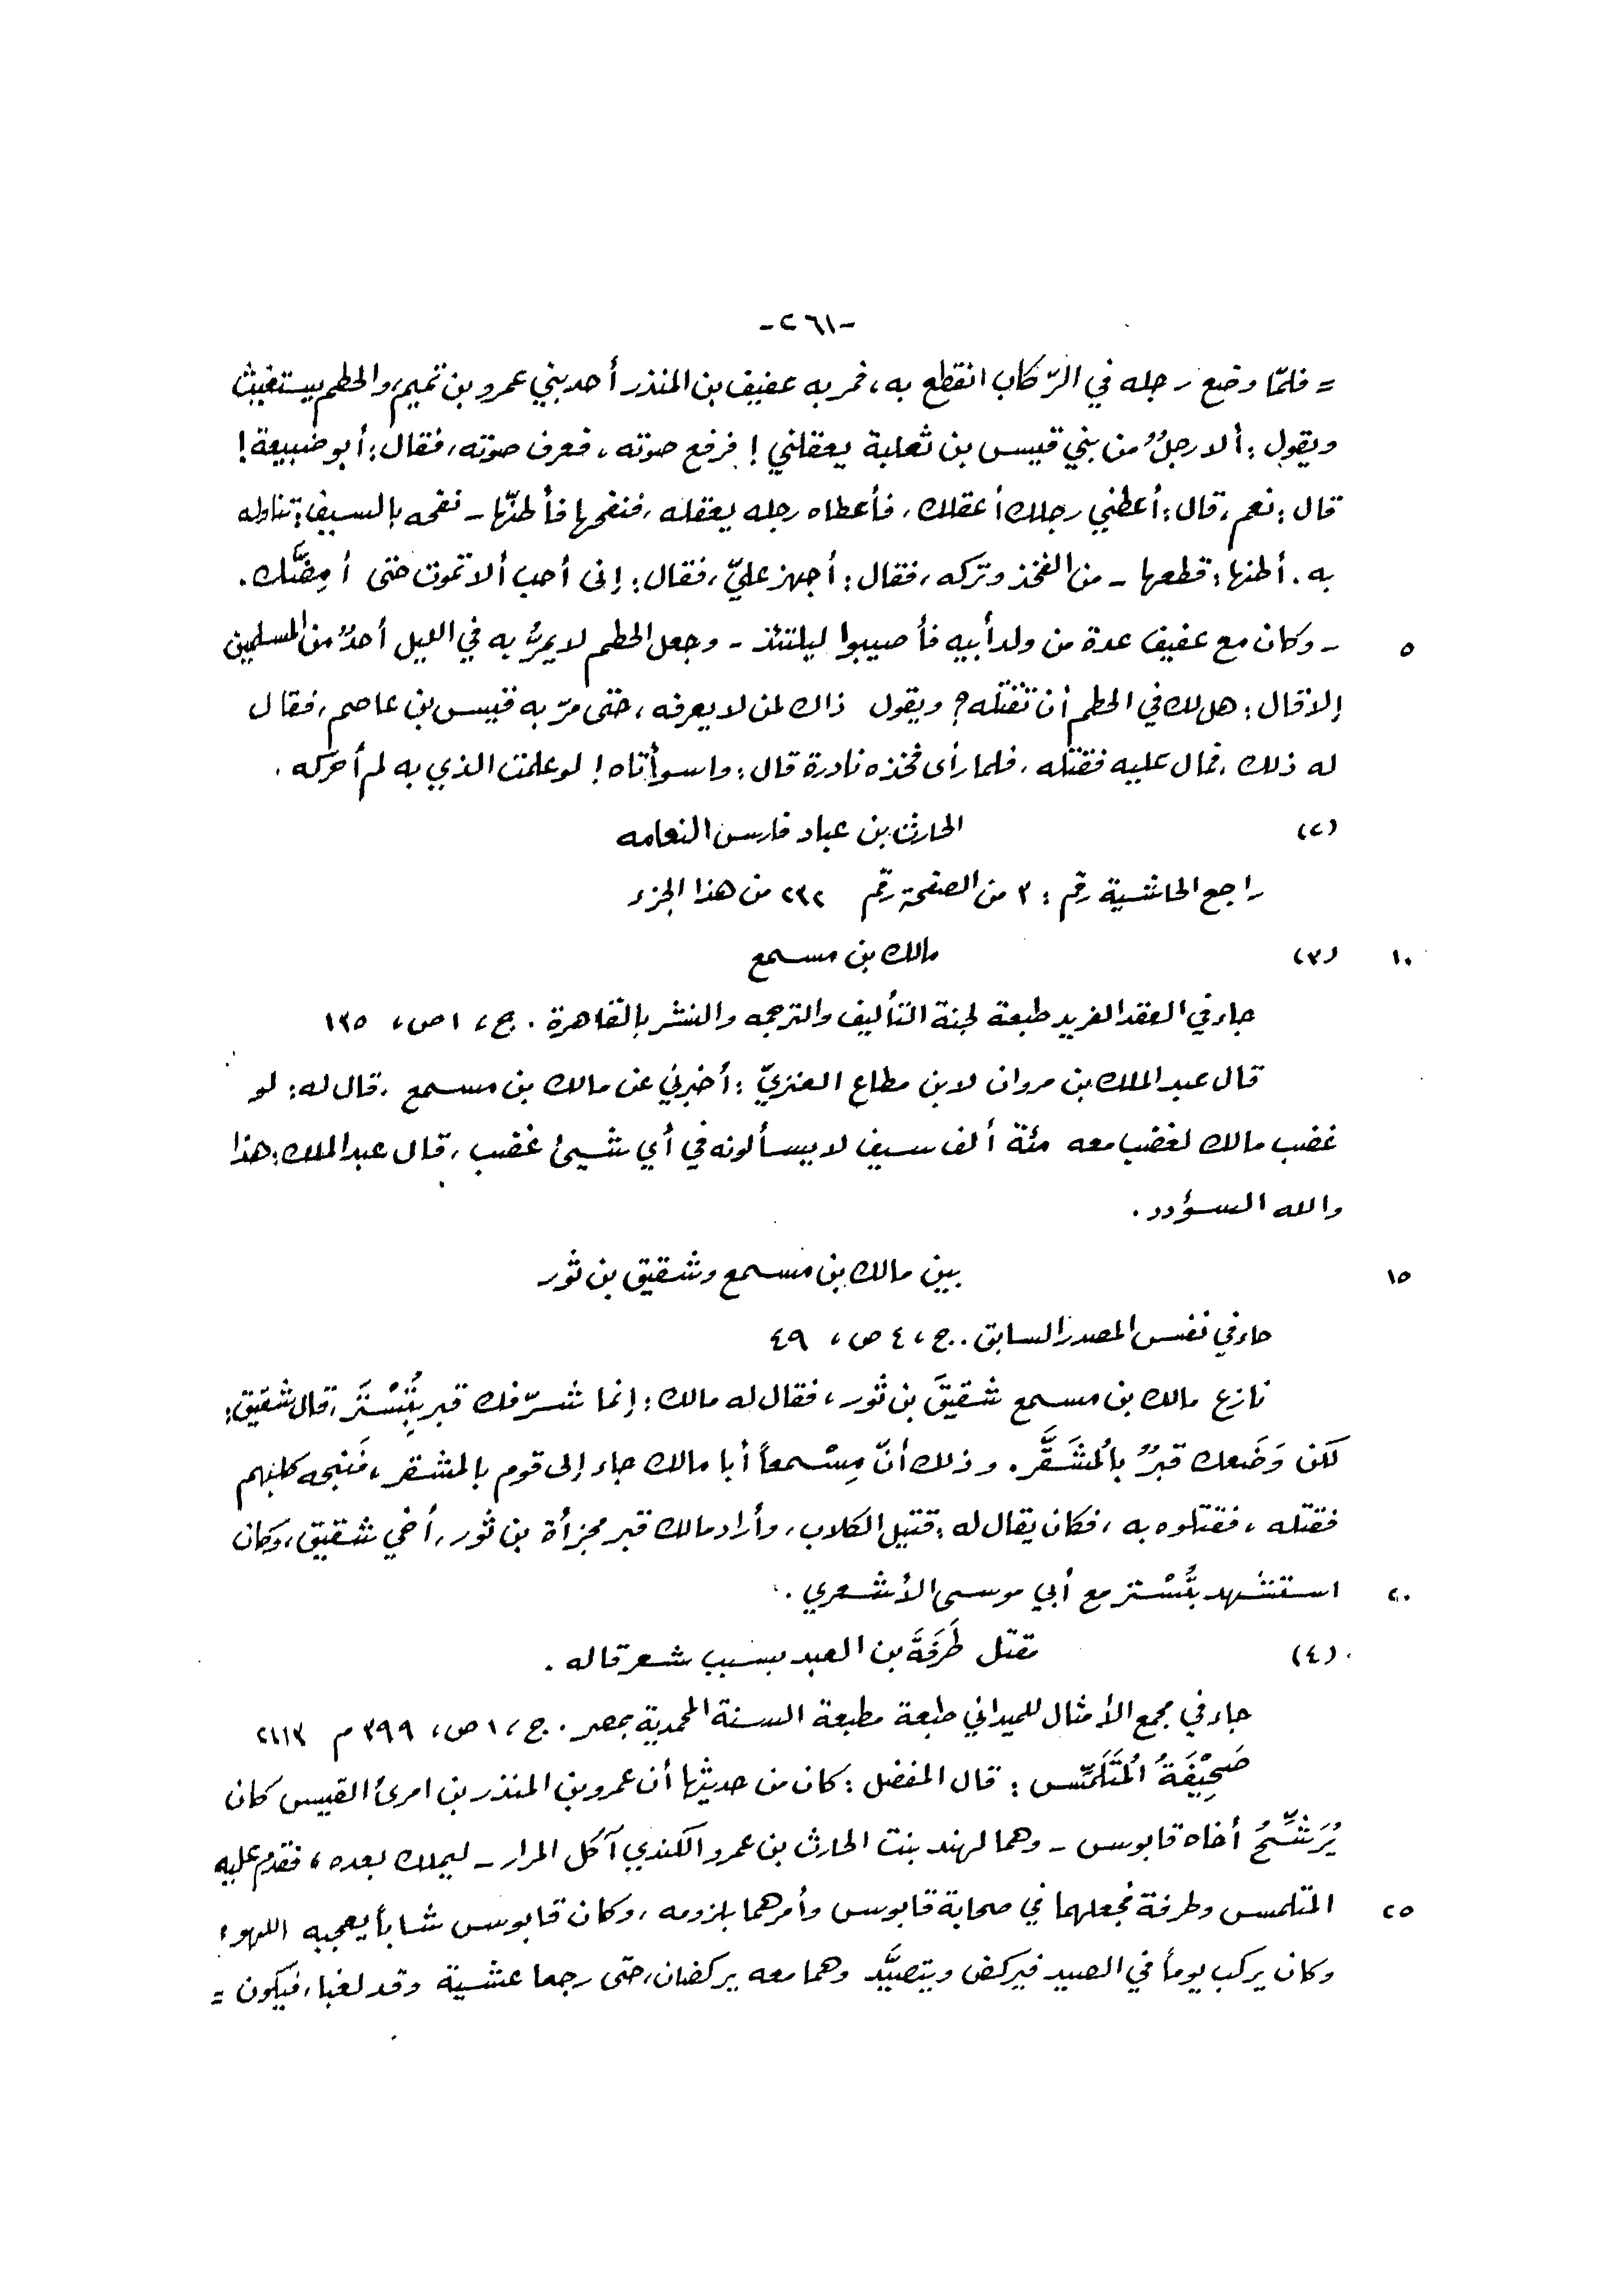 -٢٦١-
= فلمّا وضع رجله في الرّكاب انقطع به، فمر به عفيف بن المنذر أحد بني عمرو بن تميم، والحطم يستغيث
ويقول: ألا رجلٌ من بني قيس بن ثعلبة يعقلني! فرفع صوته، فعرف صوته، فقال: أبو ضبيعة!
قال: نعم، قال: أعطني رجلك أعقلك، فأعطاه رجله يعقله، فنفحها فأطنّها - نفحه بالسيف: تناوله
به. أطنها: قطعها - من الفخذ وتركه، فقال: أجهز عليّ، فقال: إنى أحب ألا تموت حتى أمِضَّك.
٥ - وكان مع عفيف عدة من ولد أبيه فأصيبوا ليلتئذ - وجعل الحطم لا يمرُّ به في الليل أحدٌ من المسلمين
إلا قال: هل لك في الحطم أن تقتله؟ ويقول ذاك لمن لا يعرفه، حتى مرّ به قيس بن عاصم، فقال
له ذلك، فمال عليه فقتله، فلما رأى فخذه نادرة قال: واسوأتاه! لو علمت الذي به لم أحركه.
(٢) الحارث بن عباد فارس النعامه
راجع الحاشية رقم: ٣ من الصفحة رقم ٢٣٢ من هذا الجزء
١٠ (٣) مالك بن مسمع
جاء في العقد الفريد طبعة لجنة التأليف والترجمه والنشر بالقاهرة. ج، ١ ص، ١٣٥
قال عبد الملك بن مروان لابن مطاع العنزيّ: أخبرني عن مالك بن مسمع، قال له: لو
غضب مالك لغضب معه مئة ألف سيف لا يسألونه في أي شيئ غضب، قال عبد الملك: هذا
والله السؤدد.
١٥ بين مالك بن مسمع وشقيق بن ثور
جاء في نفس المصدر السابق. ج، ٤ ص، ٤٩
نازع مالك بن مسمع شقيقَ بن ثور، فقال له مالك: إنما شرّفك قبر بتُسْتَر، قال شقيق:
لكن وَضَعك قبرٌ بالمُشَقَّر. وذلك أنّ مِسْمعاً أبا مالك جاء إلى قوم بالمشقر، فَنبحه كلبهم
فقتله، فقتلوه به، فكان يقال له: قتيل الكلاب، وأراد مالك قبر مجزأة بن ثور، أخي شقيق، وكان
٢٠ استشهد بتُسْتر مع أبي موسى الأشعري.
(٤) مقتل طَرَفَةَ بن العبد بسبب شعر قاله.
جاء في مجمع الأمثال للميداني طبعة مطبعة السنة المحمدية بمصر. ج، ١ ص، ٣٩٩ م ٢١١٣
صَحِيْفَةُ المُتَلَمِّس: قال المفضل: كان من حديثها أن عمرو بن المنذر بن امرئ القيس كان
يُرَشِّحُ أخاه قابوس - وهما لهند بنت الحارث بن عمرو الكندي آكل المرار - ليملك بعده، فقدم عليه
٢٥ المتلمس وطرفة فجعلهما في صحابة قابوس وأمرهما بلزومه، وكان قابوس شاباً يعجبه اللهو،
وكان يركب يوماً في الصيد فيركض ويتصيَّد وهما معه يركضان، حتى رجعا عشية وقد لغبا، فيكون =